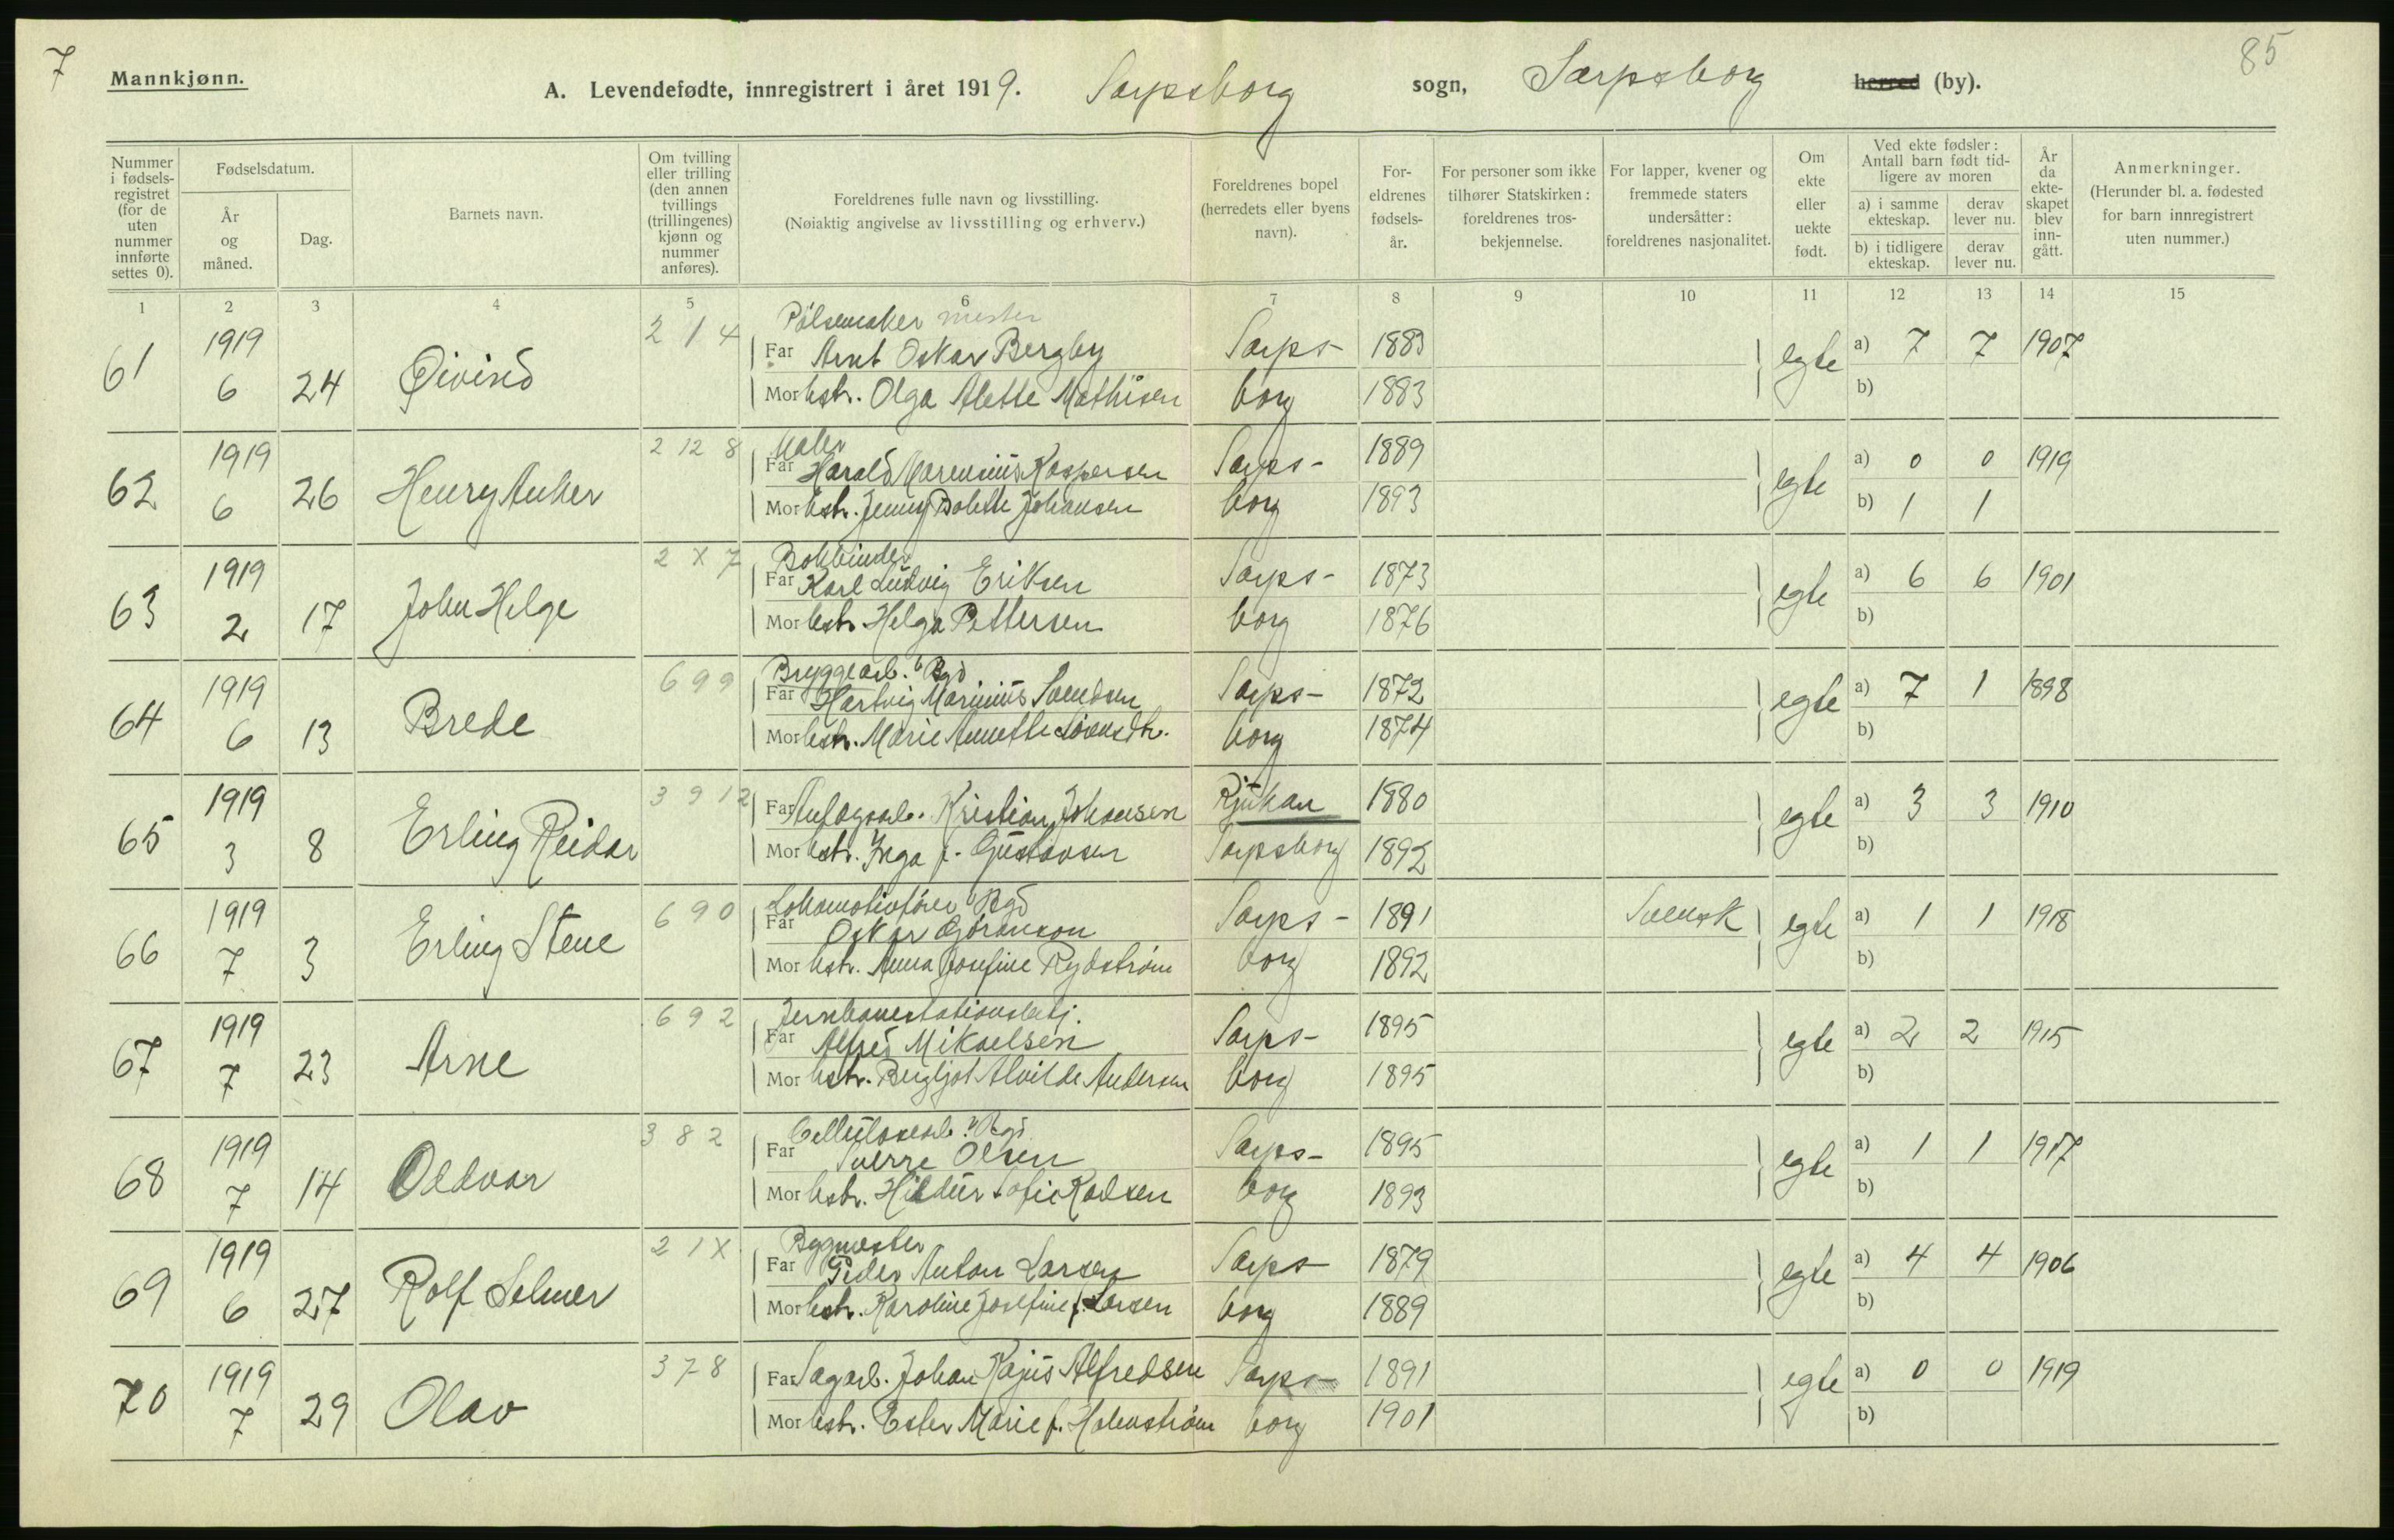 7
85
Mannkjønn.
A. Levendefødte, innregistrert i året 1919. Sarpsborg sogn, Sarpsborg herred (by).
Nummer i fødsels-registret (for de uten nummer innførte settes 0).
Fødselsdatum.
År og måned.
Dag.
Barnets navn.
Om tvilling eller trilling (den annen tvillings (trillingenes) kjønn og nummer anføres).
Foreldrenes fulle navn og livsstilling.
(Nøiaktig angivelse av livsstilling og erhverv.)
Foreldrenes bopel (herredets eller byens navn).
For-eldrenes fødsels-år.
For personer som ikke tilhører Statskirken: foreldrenes tros-bekjennelse.
For lapper, kvener og fremmede staters undersåtter: foreldrenes nasjonalitet.
Om ekte eller uekte født.
Ved ekte fødsler: Antall barn født tid-ligere av moren
a) i samme ekteskap.
derav lever nu.
b) i tidligere ekteskap.
derav lever nu.
År da ekte-skapet blev inn-gått.
Anmerkninger.
(Herunder bl. a. fødested for barn innregistrert uten nummer.)
1 2 3 4 5 6 7 8 9 10 11 12 13 14 15
2 1 4 Pølsemaker mester
61 1919 6 24 Øivind Far Arnt Oskar Bergby Sarps- 1883 egte a) 7 7 1907
Mor hstr. Olga Alette Mathisen borg 1883 b)
2 12 8 Maler
62 1919 6 26 Henry Anker Far Harald Marensius Kaspersen Sarps- 1889 egte a) 0 0 1919
Mor hstr. Jenny Bolette Johansen borg 1893 b) 1 1
2 X 7 Bokbinder
63 1919 2 17 John Helge Far Karl Ludvig Eriksen Sarps- 1873 egte a) 6 6 1901
Mor hstr. Helga Pettersen borg 1876 b)
6 9 9 Bryggearb. Bgd
64 1919 6 13 Brede Far Hartvig Marinius Svendsen Sarps- 1872 egte a) 7 1 1898
Mor hstr. Marie Annette borg 1874 b)
3 9 12
65 1919 3 8 Erling Reidar Far Anlegsarb. Kristian Johansen Rjukan 1880 egte a) 3 3 1910
Mor hstr. Inga f. Gustavsen Sarpsborg 1892 b)
6 9 0 Lokomotivfører Bgd
66 1919 7 3 Erling Stene Far Oskar Göranson Sarps- 1891 Svensk egte a) 1 1 1918
Mor hstr. Anna Josefine Rydstrøm borg 1892 b)
6 9 2 Jernbanestationsbetj.
67 1919 7 23 Arne Far Alfred Mikaelsen Sarps- 1895 egte a) 2 2 1915
Mor hstr. Bergljot Alvilde Andersen borg 1895 b)
3 8 2 Cellulosearb. Bgd
68 1919 7 14 Oddvar Far Sverre Olsen Sarps- 1895 egte a) 1 1 1917
Mor hstr. Hildur Sofie Karlsen borg 1893 b)
2 1 X Bygmester
69 1919 6 27 Rolf Selmer Far Peder Anton Larsen Sarps- 1879 egte a) 4 4 1906
Mor hstr. Karoline Josefine f. Larsen borg 1889 b)
3 7 8
70 1919 7 29 Olav Far Sagarb. Johan Kajus Alfredsen Sarps- 1891 egte a) 0 0 1919
Mor hstr. Ester Marie f. Holmstrøm borg 1901 b)